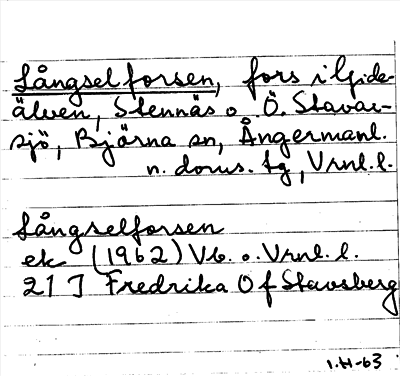 Långselforsen, fors i Gide-
älven, Stennäs o. Ö. Stavar-
sjö, Björna sn, Ångermanl.
n. doms. tg, Vrnl. l.
Långselforsen
ek (1962) Vb. o. Vrnl. l.
21 J Fredrika Of Stavsberg
I.H-63